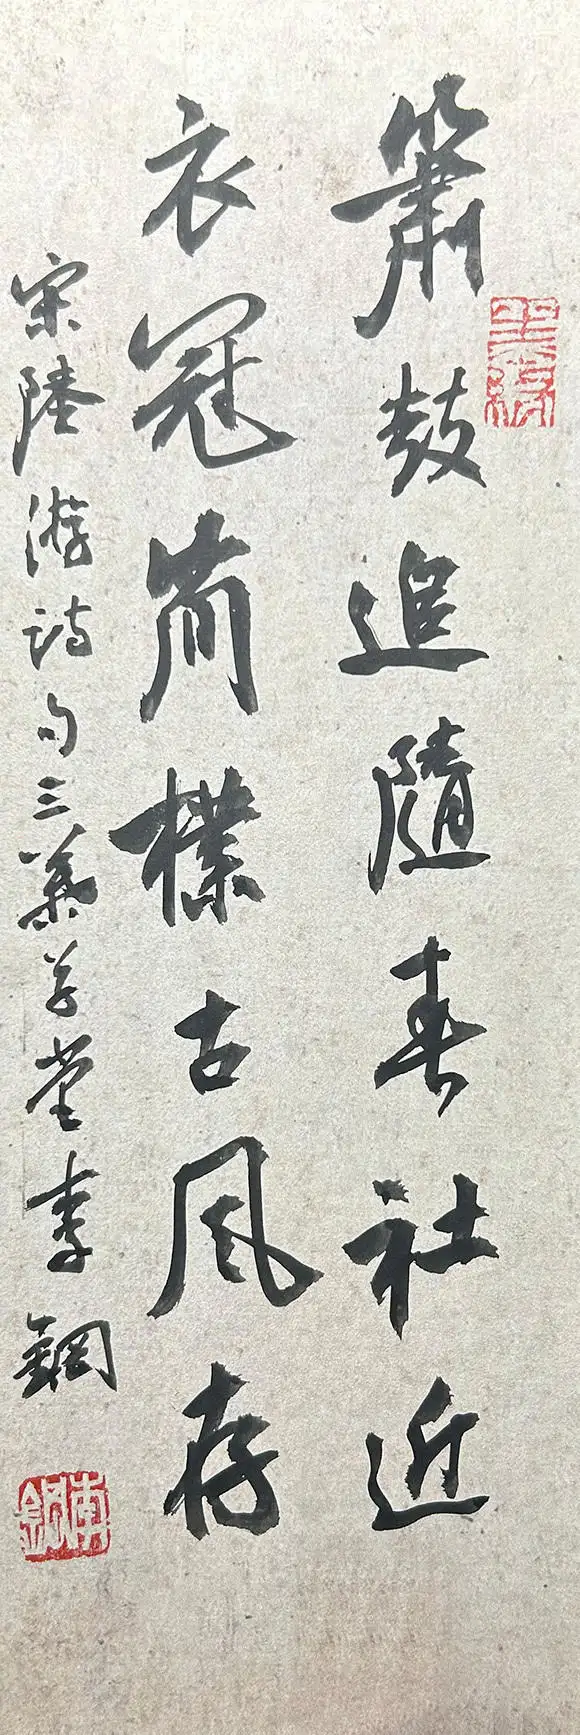 簫鼓追隨春社近
衣冠簡樸古風存
宋陸游詩句三葉草堂李鋼
李鋼